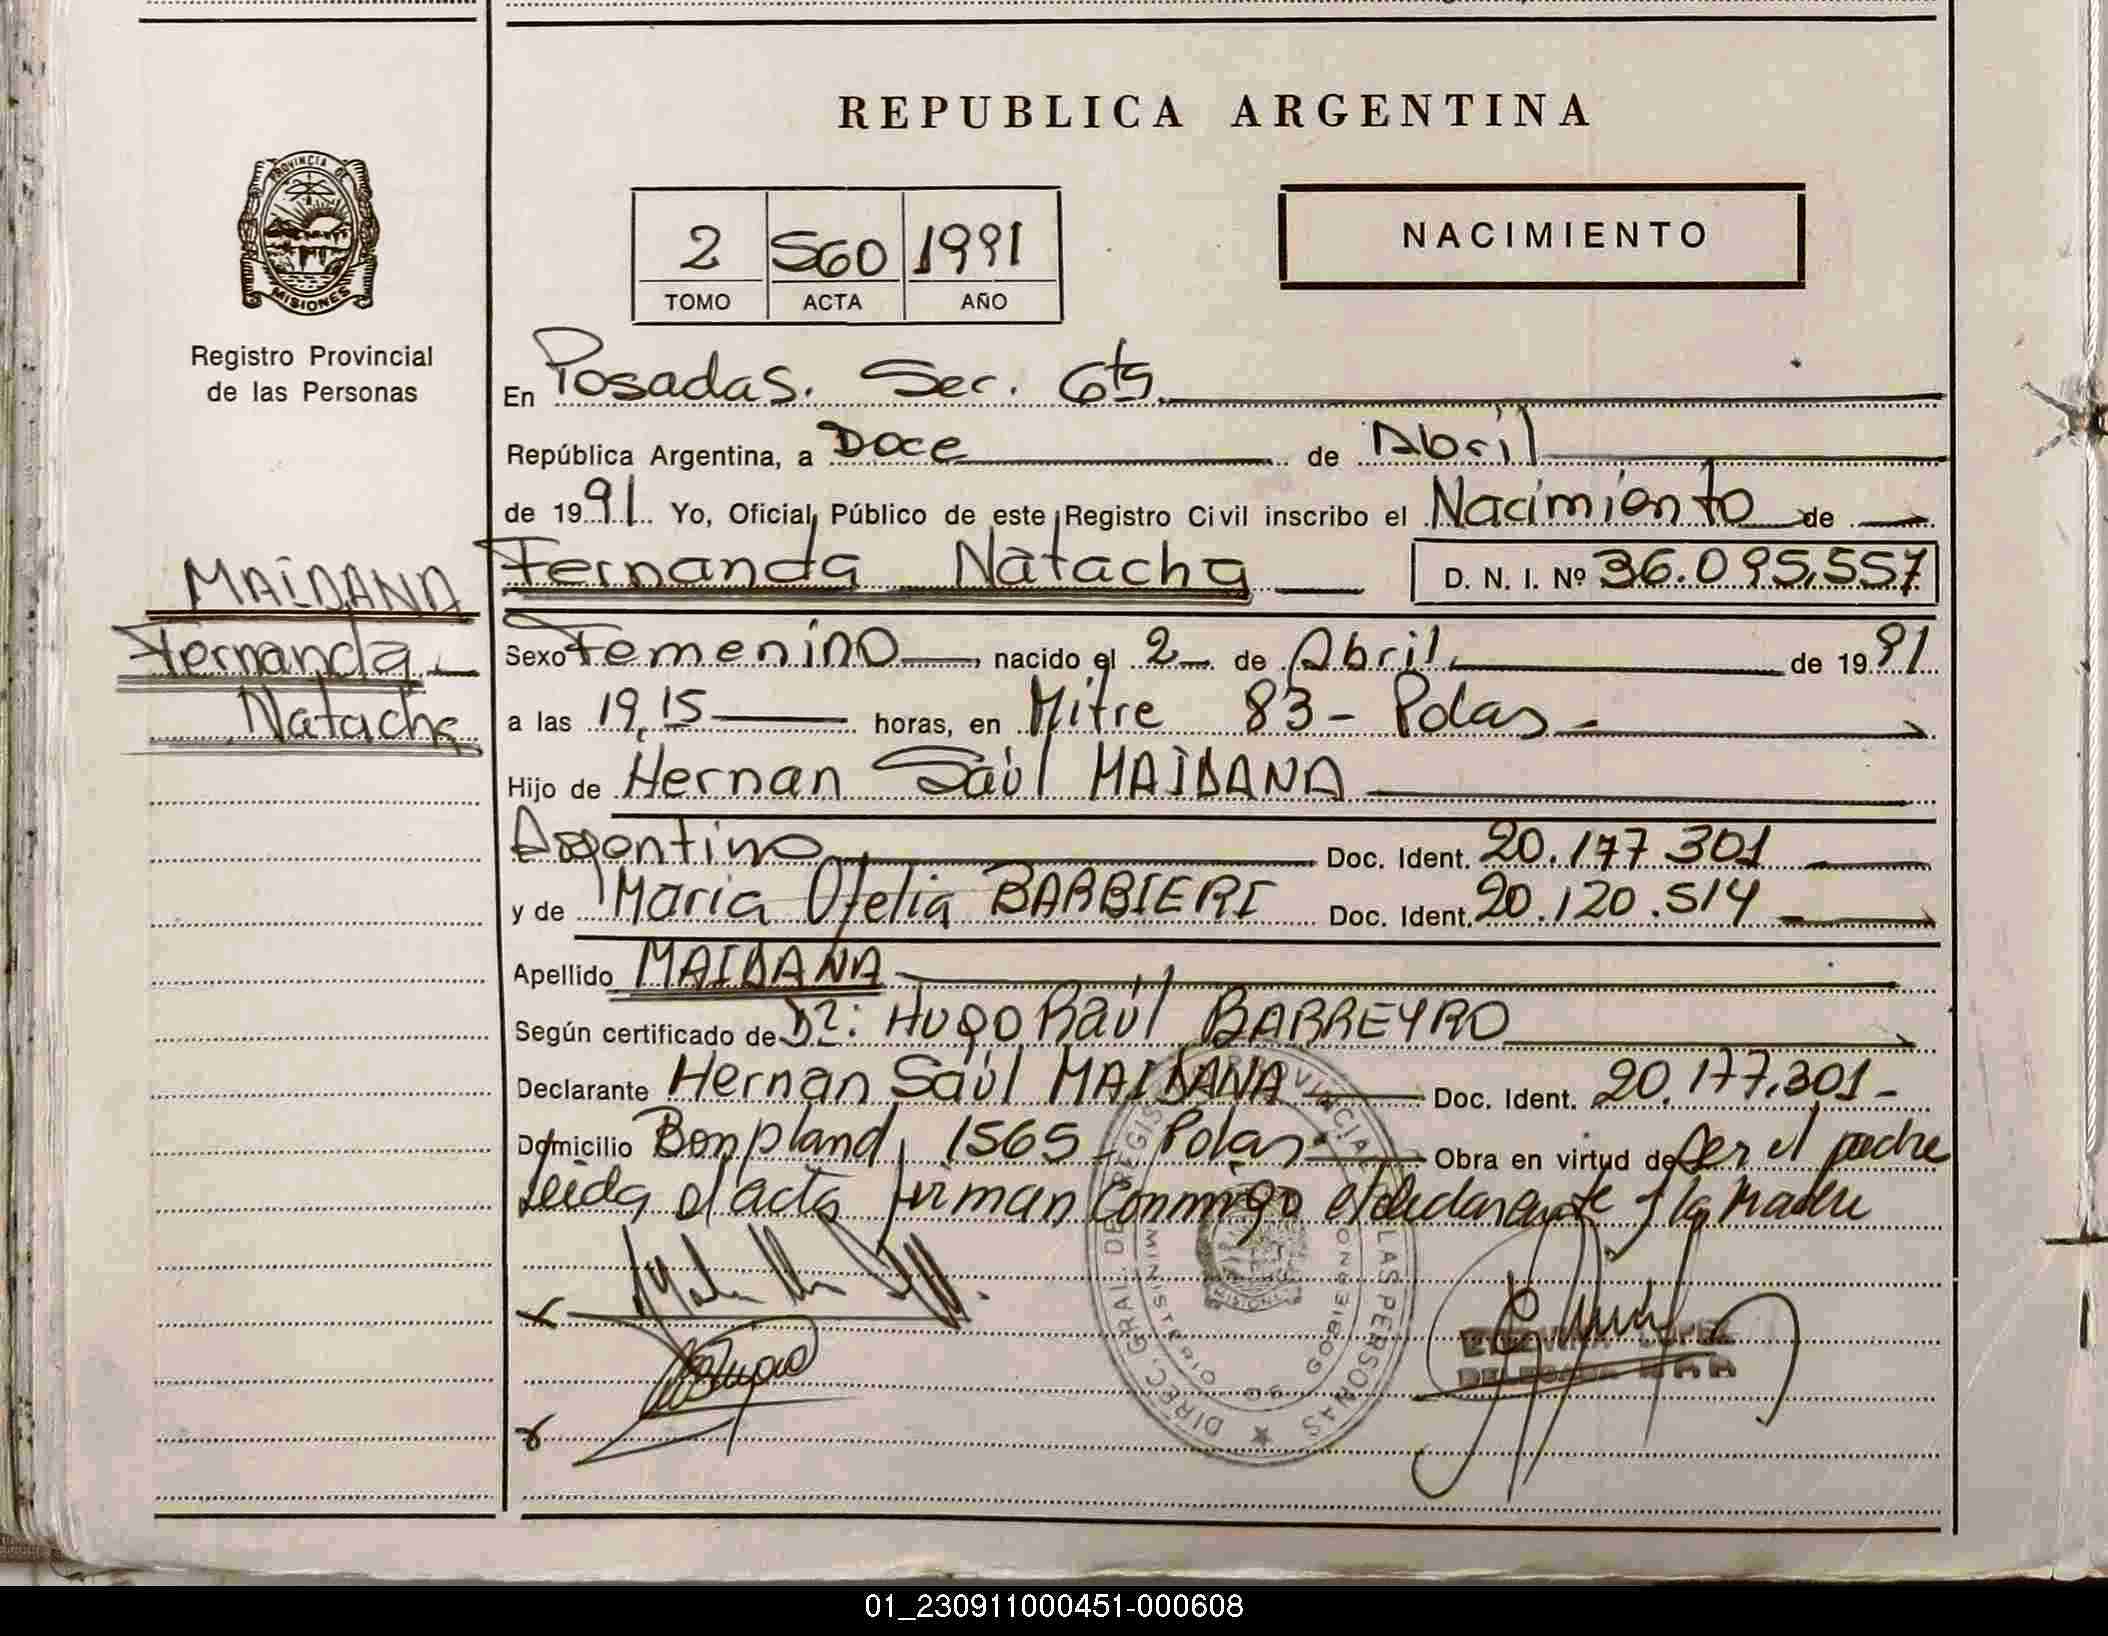 REPUBLICA ARGENTINA
PROVINCIA DE
MISIONES
Registro Provincial
de las Personas
2 560 1991
TOMO ACTA AÑO
NACIMIENTO
En Posadas. Sec. 6ta.
República Argentina, a Doce de Abril
de 1991 Yo, Oficial Público de este Registro Civil inscribo el Nacimiento de
MAIDANA
Fernanda
Natacha
Fernanda Natacha D. N. I. Nº 36.095.557
Sexo Femenino, nacido el 2 de Abril de 1991
a las 19,15 horas, en Mitre 83 - Pdas -
Hijo de Hernan Saúl MAIDANA
Argentino Doc. Ident. 20.177.301
y de Maria Ofelia BARBIERI Doc. Ident. 20.120.514
Apellido MAIDANA
Según certificado de Dr: Hugo Raúl BARREYRO
Declarante Hernan Saúl MAIDANA Doc. Ident. 20.177.301-
Domicilio Bonpland 1565 - Pdas - Obra en virtud de Ser el padre
Leida el acta firman conmigo el declarante y la Madre
DIREC. GRAL. DE REGIST. PROVINCIAL LAS PERSONAS
MINISTERIO DE GOBIERNO
MISIONES
01_230911000451-000608